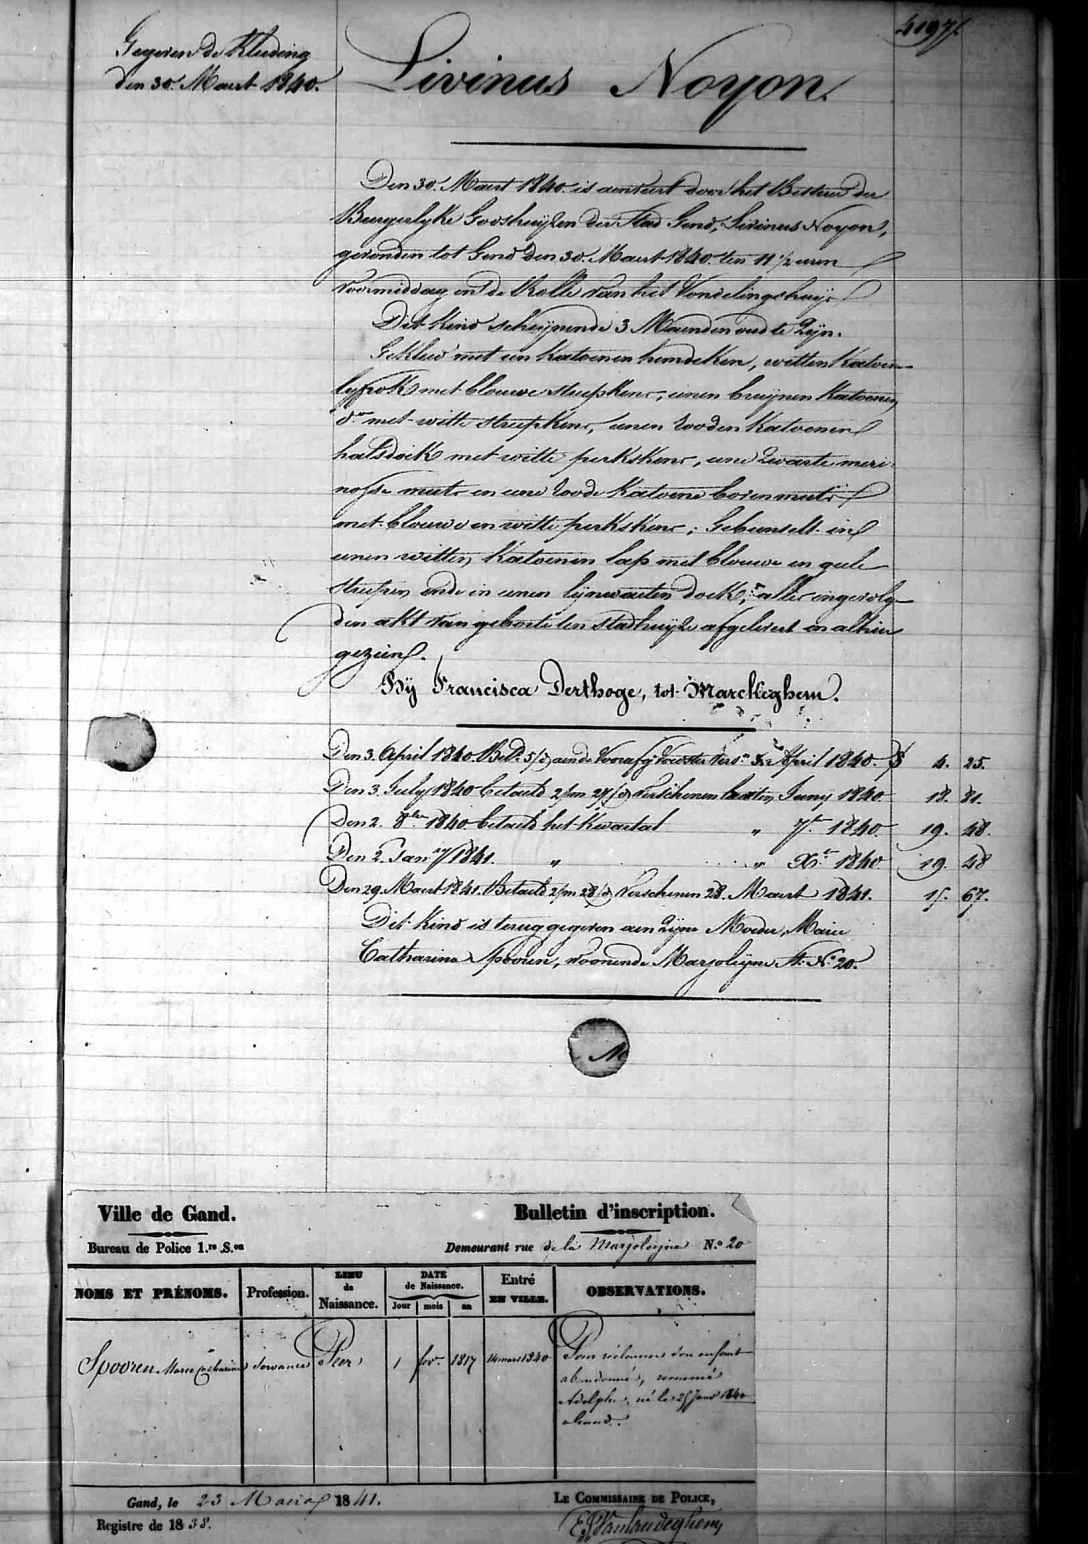 4197.
Gegeven de Kleeding
den 30. Maert 1840.
Livinus Noyon.
Den 30. Maert 1840 is aenveert door het Bestier der
Burgerlyke Godshuyzen der Stad Gend, Livinus Noyon,
gevonden tot Gend den 30. Maert 1840. ten 11 1/2 uren
voormiddag in de Rolle van het Vondelingshuys
Dit kind schynende 3 Maenden oud te Zyn.
Gekleed met een katoenen hemdeken, witten katoen
lyfrok met blouwe streepkens, eenen bruynen katoenen
do met witte streepkens, eenen rooden katoenen
halsdoek met witte perkskens, eene zwarte meri-
nosse muts en eene roode katoene bovenmuts
met blouwe en witte perkskens; Gebunselt in
eenen witten katoenen lap met blouwe en gele
streepen ende in eenen lynwaeten doek; alles ingevolge
den akt van geboorte ten stadhuyze afgelevert en alhier
gezien.
Bÿ Francisca Derthoge, tot Marckeghem.
Den 3. April 1840. Betd. 5/d aen de Voorsr. April 1840. 4. 25.
Den 3. July 1840 betaeld 2/m 27/d verschenen Juny 1840 18. 81.
Den 2. 8ber 1840 betaeld het kwartael " 7r 1840. 19. 48.
Den 2. Jany 1841. " " Xr 1840. 19. 48
Den 29. Maert 1841. Betaeld 2/m 28/d Verschenen 28. Maert 1841. 17. 67.
Dit kind is terug gegeven aen Zyne Moeder, Marie
Catharina Spooren, woonende Marjoleyne St. No. 20.
Ville de Gand.
Bulletin d'inscription.
Bureau de Police 1.re S.on
Demeurant rue de la Marjoleyne N.o 20
NOMS ET PRÉNOMS. Profession. LIEU de Naissance. DATE de Naissance. Jour mois an Entré EN VILLE. OBSERVATIONS.
Spooren Marie Catharine servante Peer 1 fevr. 1817 14 mars 1840 Pour réclamer son enfant
abandonné, nommé
Adolphe, né le 25 Janv 1840
à Gand.
Gand, le 23 Mars 1841.
LE COMMISSAIRE DE POLICE,
Registre de 1838.